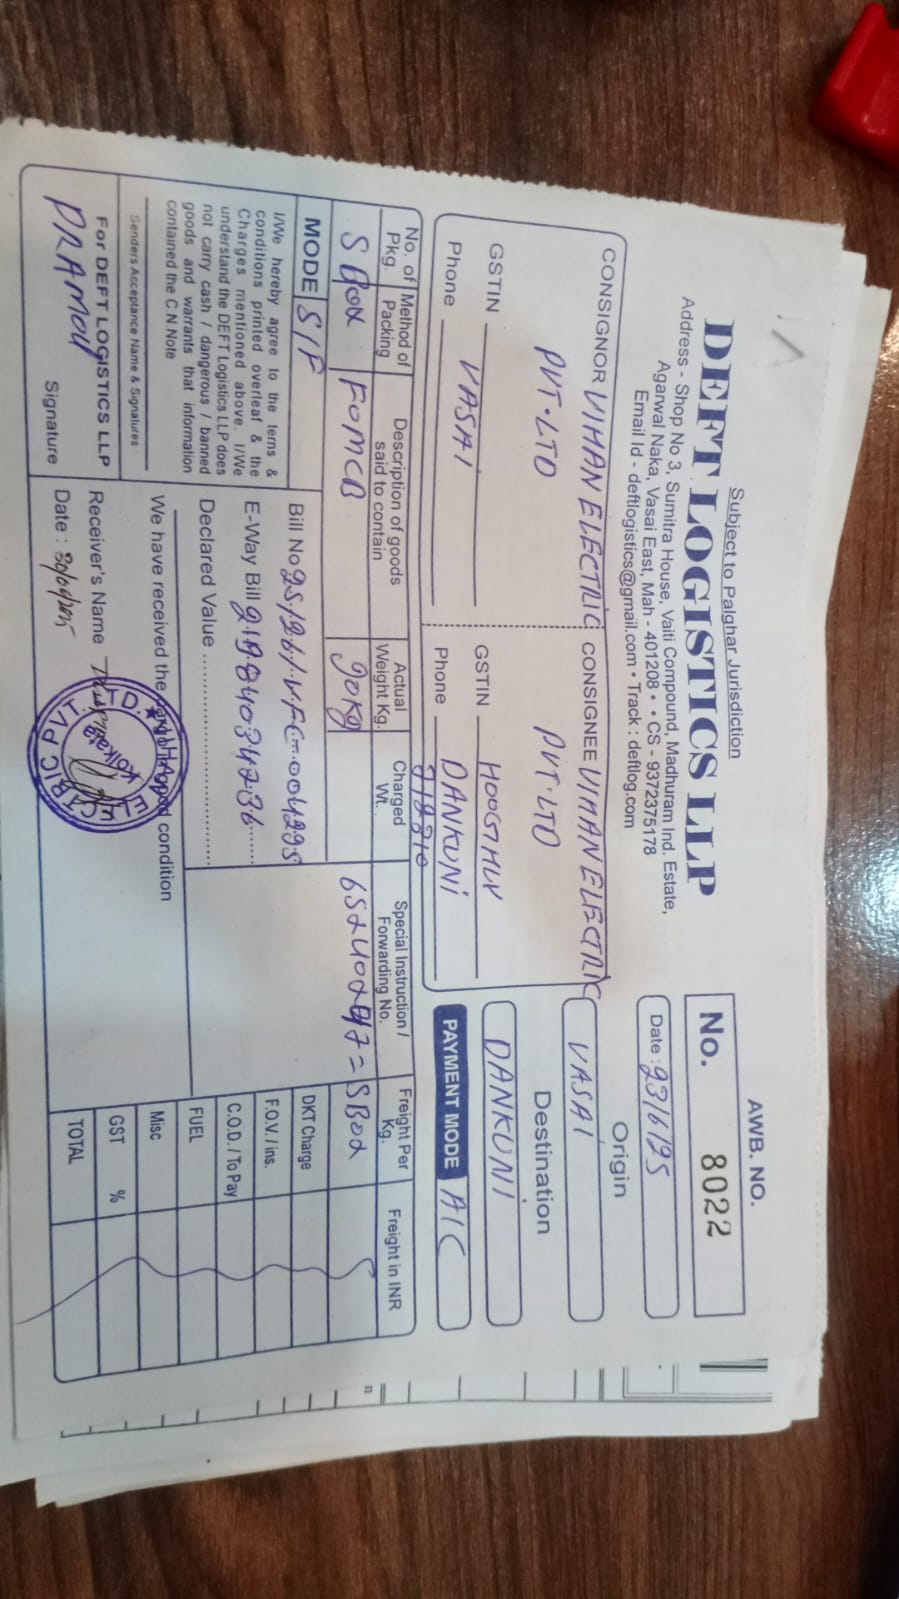 Subject to Palghar Jurisdiction
DEFT LOGISTICS LLP
Address - Shop No 3, Sumitra House, Vaiti Compound, Madhuram Ind. Estate,
Agarwal Naka, Vasai East, Mah - 401208 • • CS - 9372375178
Email Id - deftlogistics@gmail.com • Track : deftlog.com
AWB. NO.
No. 8022
Date : 23/6/25
CONSIGNOR VIHAN ELECTRIC
PVT. LTD
GSTIN
VASAI
Phone
CONSIGNEE VIHAN ELECTRIC
PVT. LTD
GSTIN HOOGHLY
DANKUNI
Phone 712310
Origin
VASAI
Destination
DANKUNI
PAYMENT MODE A/C
No. of Pkg.
Method of Packing
Description of goods said to contain
Actual Weight Kg.
Charged Wt.
Special Instruction / Forwarding No.
Freight Per Kg.
Freight in INR
5 Box
90 Kg
= 5 Box
MODE S/F
Bill No 25/26/VFC-004295
E-Way Bill
Declared Value
DKT Charge
F.O.V. / ins.
C.O.D. / To Pay
FUEL
Misc
GST %
TOTAL
I/We hereby agree to the terns &
conditions printed overleaf & the
Charges mentioned above. I/We
understand the DEFT Logistics LLP does
not carry cash / dangerous / banned
goods and warrants that information
contained the C.N.Note
Senders Acceptance Name & Signatures
For DEFT LOGISTICS LLP
PRAMOD
Signature
We have received the condition
Receiver's Name
Date :
Kolkata